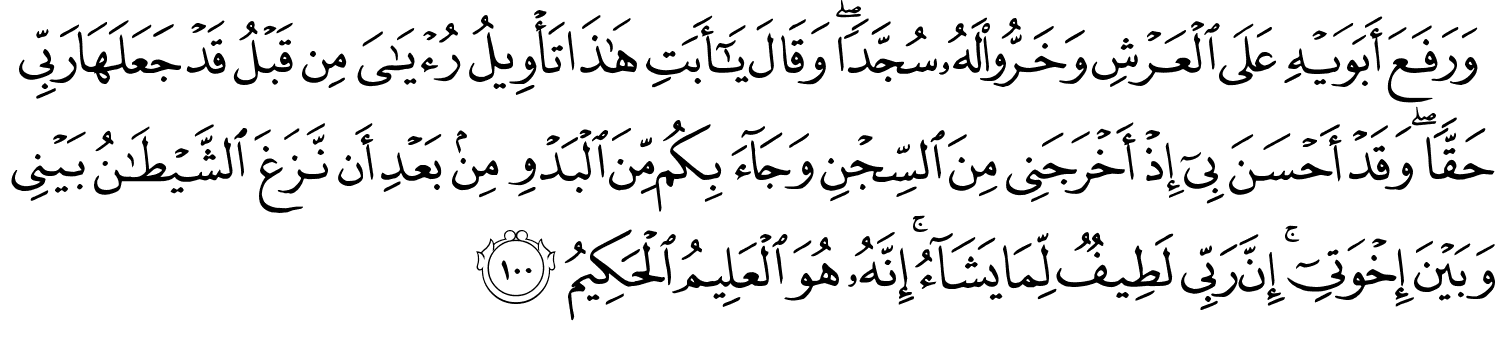 وَرَفَعَ أَبَوَيْهِ عَلَى ٱلْعَرْشِ وَخَرُّوا۟ لَهُۥ سُجَّدًا ۖ وَقَالَ يَـٰٓأَبَتِ هَـٰذَا تَأْوِيلُ رُءْيَـٰىَ مِن قَبْلُ قَدْ جَعَلَهَا رَبِّى
حَقًّا ۖ وَقَدْ أَحْسَنَ بِىٓ إِذْ أَخْرَجَنِى مِنَ ٱلسِّجْنِ وَجَآءَ بِكُم مِّنَ ٱلْبَدْوِ مِنۢ بَعْدِ أَن نَّزَغَ ٱلشَّيْطَـٰنُ بَيْنِى
وَبَيْنَ إِخْوَتِىٓ ۚ إِنَّ رَبِّى لَطِيفٌ لِّمَا يَشَآءُ ۚ إِنَّهُۥ هُوَ ٱلْعَلِيمُ ٱلْحَكِيمُ ١٠٠